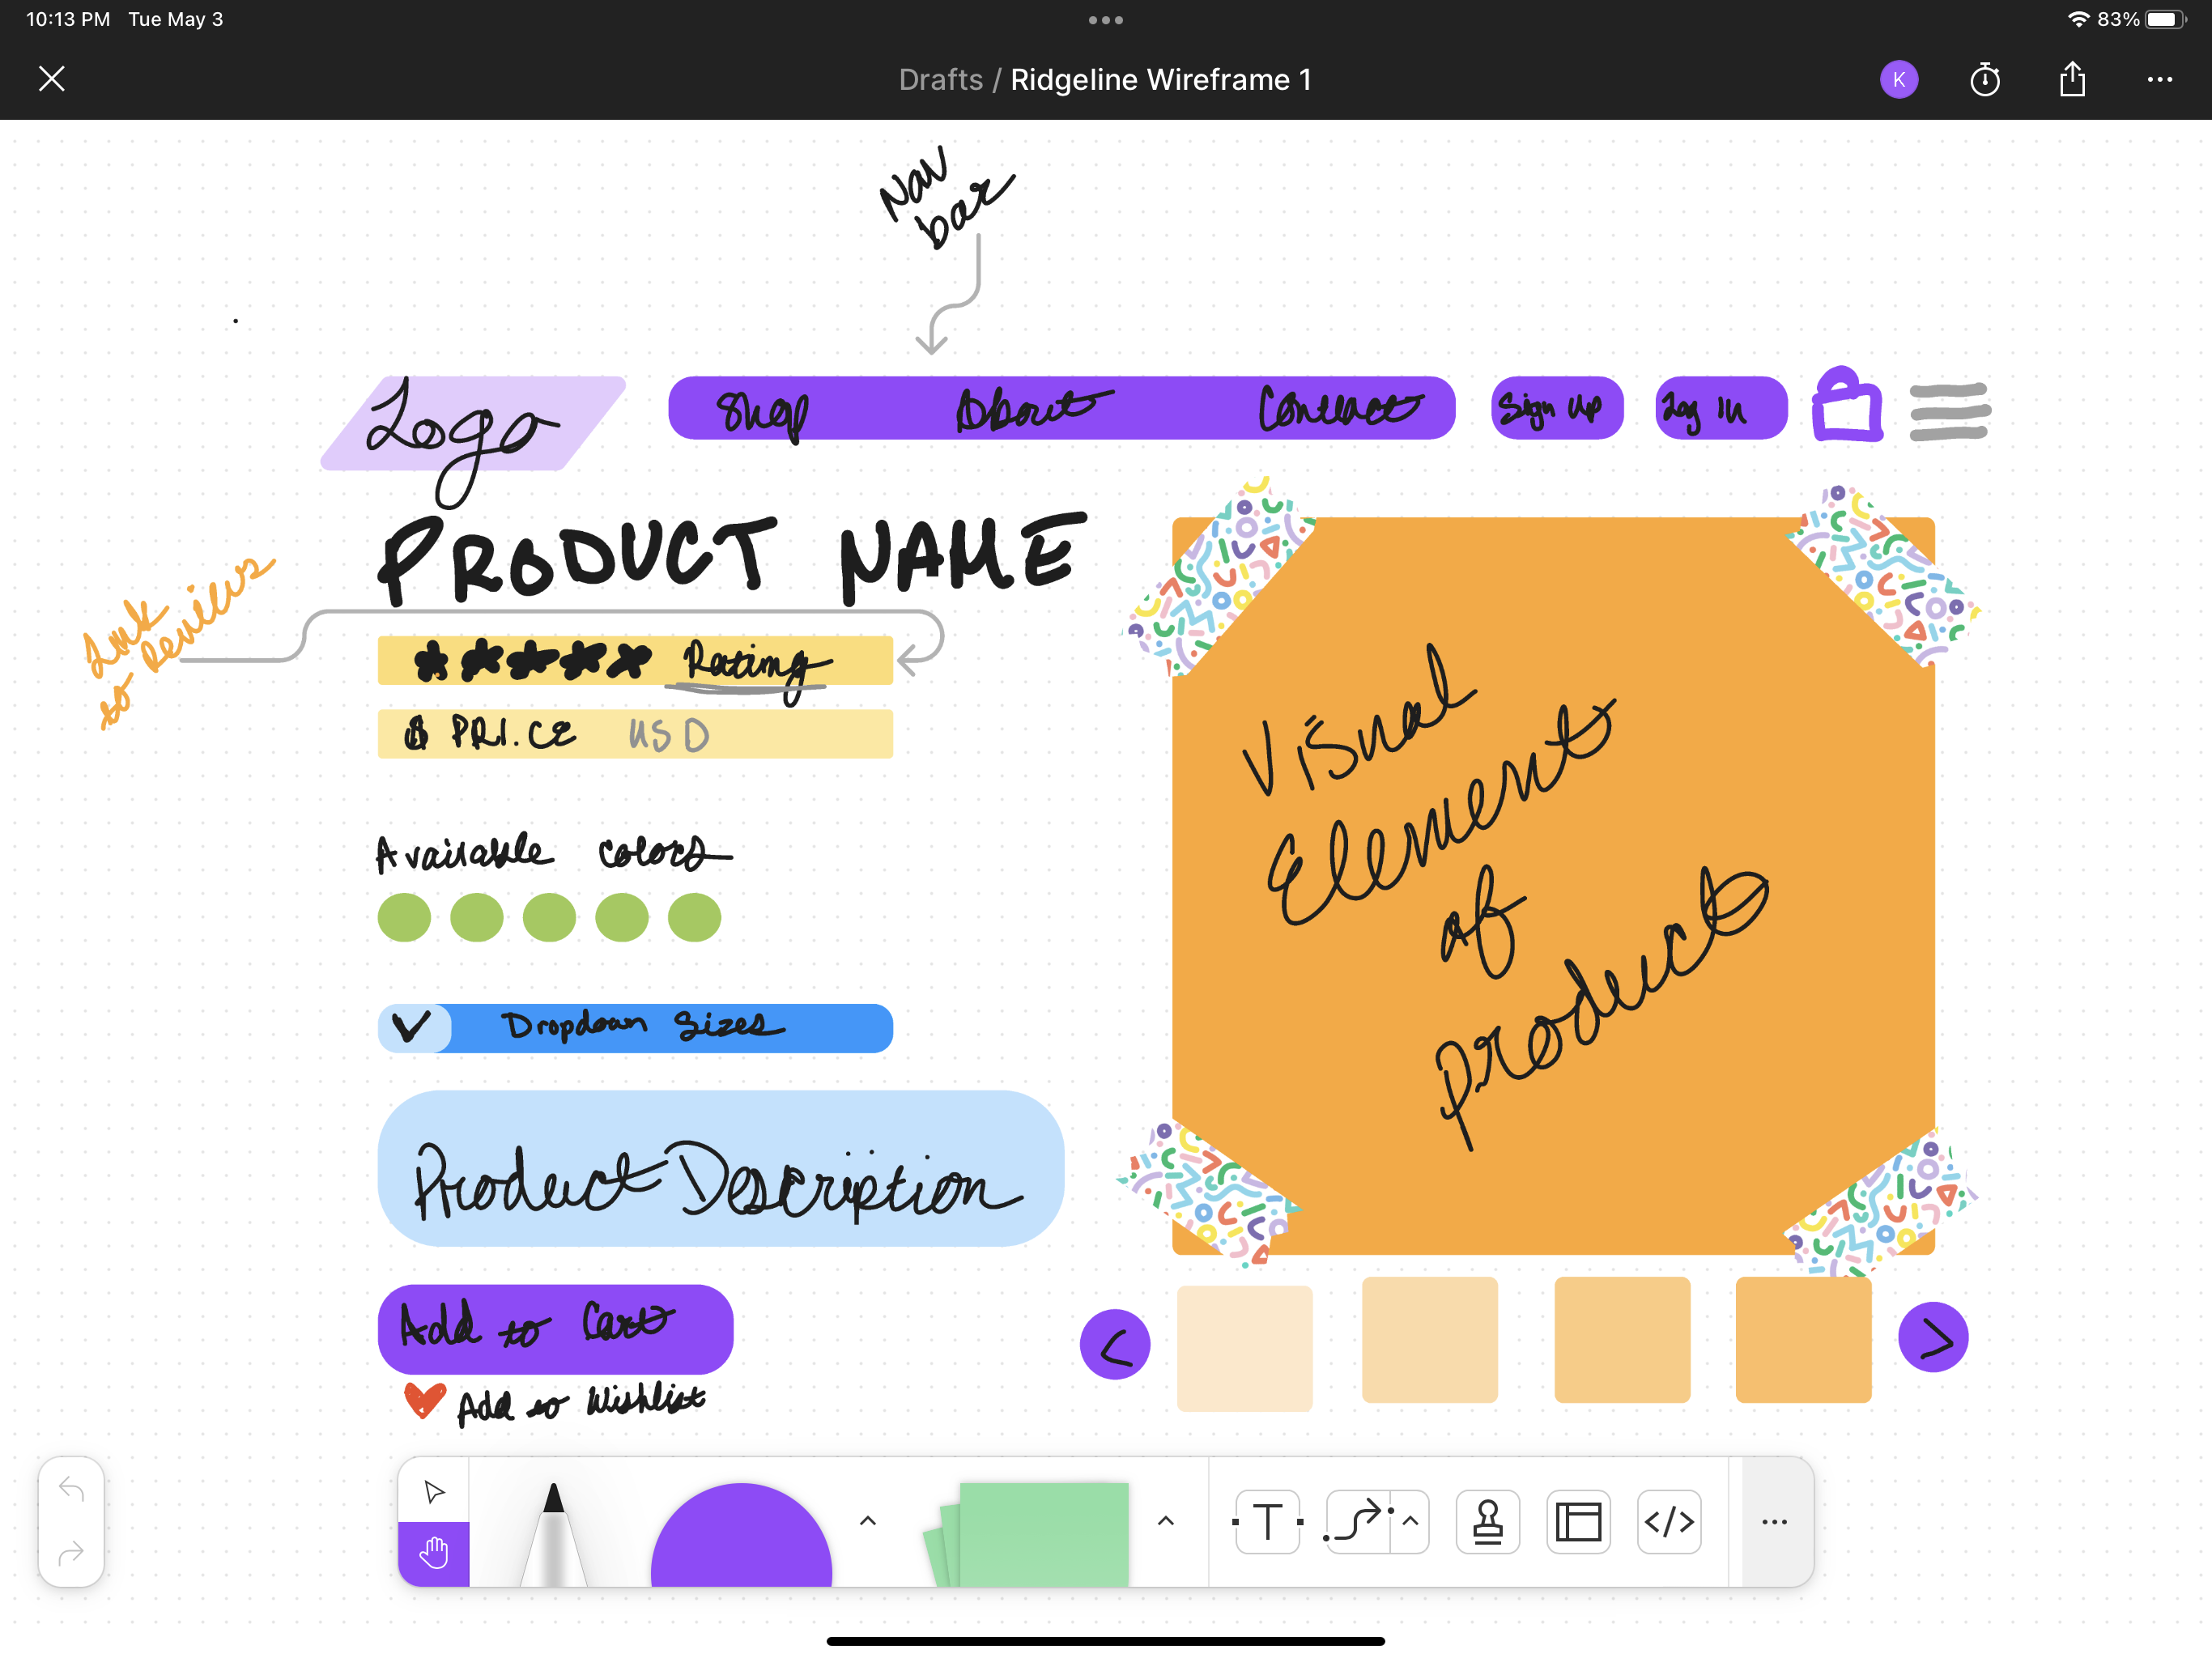 10:13 PM Tue May 3
83%
Drafts / Ridgeline Wireframe 1
K
Nav
bar
Logo
Shop About Contact Sign up Log in
PRODUCT NAME
Link
to Reviews
Rating
$ PRI.CE USD
Available colors
Dropdown Sizes
Product Description
Add to Cart
Add to Wishlist
Visual
Element
of
product
< >
T </>